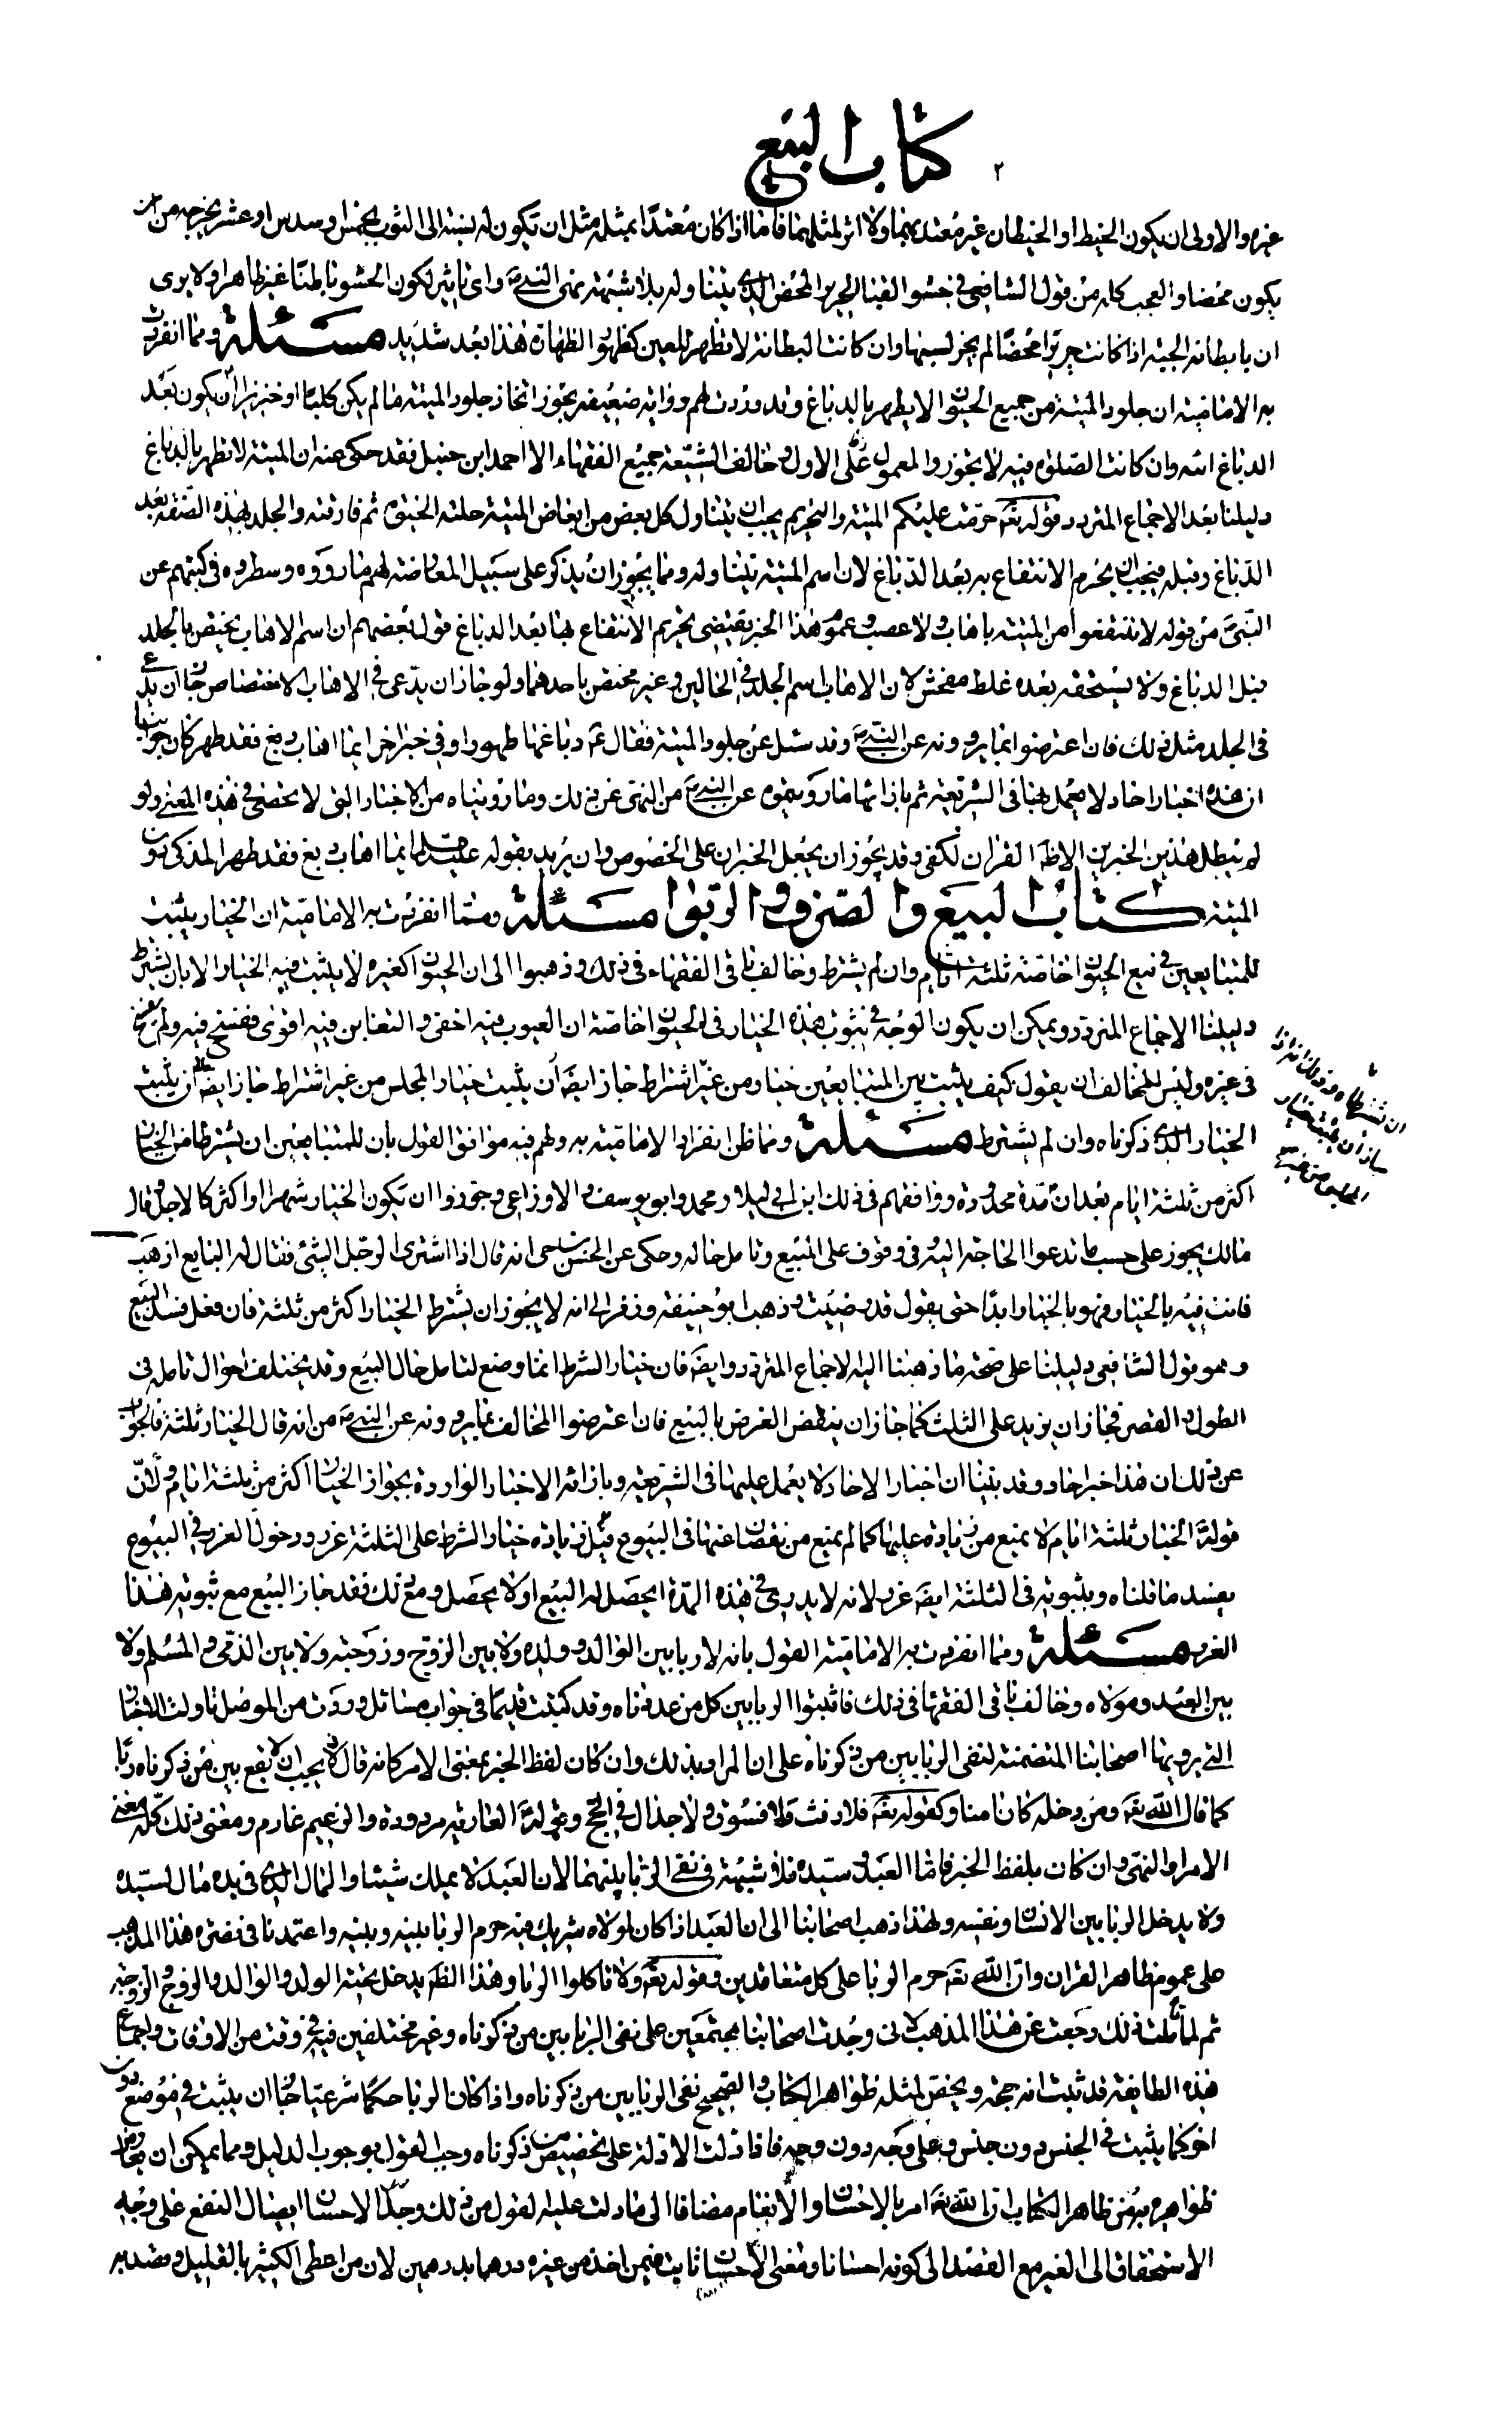 كتاب البيع
٢
غيره والاولى ان يكون الخيط او الخيطان غير معتد بهما ولا اثر لمثلهما فاما اذا كان معتدا بمثله مثل ان تكون له نسبة الى الثوب بخمس او سدس او عشر يخرجه من ان
يكون محضا والعجب كله من قول الشافعي في حشو القبا الحرير المحض الذي يتناوله بلا شبهة نهى النبي ص واى تاثير لكون الحشو باطنا غير ظاهر اولا يرى
ان بابطانة الجبة اذا كانت حريرا محضا لم يجز لبسها وان كانت البطانة لا تظهر للعين كظهور الظهارة هذا بعد شديد مسئلة ومما انفردت
به الامامية ان جلود الميتة من جميع الحيوان لا يطهر بالدباغ وقد وردت لهم رواية ضعيفة بجواز اتخاذ جلود الميتة ما لم يكن كلبا او خنزيرا ان يكون بعد
الدباغ انه وان كانت الصلوة فيه لا يجوز والمعمول على الاول وخالف الشيعة جميع الفقهاء الا احمد ابن حنبل فقد حكى عنه ان الميتة لا تطهر بالدباغ
دليلنا بعد الاجماع المتردد قوله تع حرمت عليكم الميتة والتحريم يجب ان يتناول كل بعض من ابعاض الميتة حلته الحيوة ثم فارقته والجلد بهذه الصفة بعد
الدباغ وقبله فيجب ان يحرم الانتفاع به بعد الدباغ لان اسم الميتة يتناوله ومما يجوز ان يذكر على سبيل المعارضة لهم ما رووه وسطروه في كتبهم عن
النبي ص من قوله لا تنتفعوا من الميتة باهاب ولا عصب وعموم هذا الخبر يقتضى تحريم الانتفاع بها بعد الدباغ قول بعضهم ان اسم الاهاب يختص بالجلد
قبل الدباغ ولا يستحقه بعده غلط مفحش لان الاهاب اسم الجلد في الحالين وغير مختص باحدهما ولو جاز ان يدعى في الاهاب الاختصاص جاز ان يدعى
في الجلد مثل ذلك فان اعترضوا بما يروونه عن النبي ص وقد سئل عن جلود الميتة فقال ع دباغها طهورها وفي خبر اخر ايما اهاب دبغ فقد طهر كان جوابنا
ان هذه اخبار احاد لا يعمل بها في الشريعة ثم بازائها ما رويتموه عن النبي ص من النهى عن ذلك وما رويناه من الاخبار التى لا تحصى في هذه المعنى ولو
لم يبطل هذين الخبرين الا ظ القران لكفى وقد يجوز ان يحمل الخبران على الخصوص وان يريد بقوله عليه السلم ايما اهاب دبغ فقد طهر المذكى دون
الميتة كتاب البيع والصرف والربوا مسئلة ومما انفردت به الامامية ان الخيار يثبت
للمتبايعين في بيع الحيوان خاصة ثلثة ايام وان لم يشترط وخالف باقى الفقهاء في ذلك وذهبوا الى ان الحيوان كغيره لا يثبت فيه الخيار الا بان يشترط
دليلنا الاجماع المتردد ويمكن ان يكون الوجه في ثبوت هذه الخيار في الحيوان خاصة ان العيوب فيه اخفى والتغابن فيه اقوى ففسح فيه ولم يفسح
في غيره وليس للمخالف ان يقول كيف يثبت بين المتبايعين خيار من غير اشتراط جاز ايضا ان يثبت خيار المجلس من غير اشتراط جاز ايضا ان يثبت
الخيار الذي ذكرناه وان لم يشترط مسئلة ومما ظن انفراد الامامية به ولهم فيه موافق القول بان للمتبايعين ان يشترطا من الخيار
اكثر من ثلثة ايام بعد ان مدة محدودة ووافقهم في ذلك ابن ابي ليلا ومحمد وابو يوسف والاوزاعى وجوزوا ان تكون الخيار شهرا او اكثر كالاجل وقال
مالك يجوز على حسب ما تدعوا الحاجة اليه في وقوف على المبيع وتامل حاله وحكى عن الحسن بن حى انه قال اذا اشترى الرجل الشئ فقال له البايع اذهب
فانت فيه بالخيار فهو بالخيار ابدا حتى يقول قد رضيت وذهب ابو حنيفة وزفر الى انه لا يجوز ان يشترط الخيار اكثر من ثلثة فان فعل فسد البيع
وهو قول الشافعى دليلنا على صحة ما ذهبنا اليه الاجماع المتردد وايضا فان خيار الشرط انما وضع لتامل حال البيع وقد يختلف احوال تامله في
الطول والقصر فجاز ان يزيد على الثلث كما جاز ان ينقص الغرض بالبيع فان اعترضوا المخالف بما يروونه عن النبي ص من انه قال الخيار ثلثة فالجواب
عن ذلك ان هذا خبر احاد وقد بينا ان اخبار الاحاد لا يعمل عليها في الشريعة وبازائه الاخبار الواردة بجواز الخيار اكثر من ثلثة ايام ولان
قوله ع الخيار ثلثة ايام لا يمنع من زيادة عليها كما لم يمنع من نقصان عنها في البيوع قيل زيادة خيار الشرط على الثلثة غرر ودخول الغرر في البيوع
يفسد ما قلناه وبثبوته في الثلثة ايضا غرر لانه لا يدرى في هذه المدة ايحصل له البيع اولا يحصل ومع ذلك فقد جاز البيع مع ثبوته هذا
الغرر مسئلة ومما انفردت به الامامية القول بانه لا ربا بين الوالد وولده ولا بين الزوج وزوجته ولا بين الذمى والمسلم ولا
بين العبد ومولاه وخالف باقى الفقها في ذلك فاثبتوا الربا بين كل من عددناه وقد كتبت قديما في جواب مسائل وردت من الموصل تاولت الاخبار
التى يرويها اصحابنا المتضمنة لنفى الربا بين من ذكرناه على ان المراد بذلك وان كان لفظ الخبر بمعنى الامر كانه قال يجب ان لا يقع بين من ذكرناه ربا
كما قال الله تع ومن دخله كان امنا وكقوله تع فلا رفث ولا فسوق ولا جدال في الحج وقوله ع العارية مردودة والزعيم غارم ومعنى ذلك كله معنى
الامر او النهى وان كان بلفظ الخبر فاما العبد وسيده فلا شبهة في نفى الربا بينهما لان العبد لا يملك شيئا والمال الذي في يده مال لسيده
ولا يدخل الربا بين الانسان ونفسه ولهذا ذهب اصحابنا الى ان العبد اذا كان لمولاه شريك فيه حرم الربا بينه وبينه واعتمدنا في نصرة هذا المذهب
على عموم ظاهر القران وان الله تع حرم الربا على كل متعاقدين وقوله تع ولا تاكلوا الربا وهذا الظ يدخل تحته الولد والوالد والزوج والزوجة
ثم لما تاملت ذلك رجعت عن هذا المذهب لانى وجدت اصحابنا مجتمعين على نفى الربا بين من ذكرناه وغير مختلفين فيه في وقت من الاوقات واجماع
هذه الطايفة قد ثبت انه حجة ويخص لمثله ظواهر الكتاب والصحيح نفى الربا بين من ذكرناه واذا كان الربا حكما شرعيا جاز ان يثبت في موضع دون
اخر كما يثبت في الجنس دون جنس وعلى وجه دون وجه فاذا دلت الادلة على تخصيص من ذكرناه وجب القول بموجب الدليل ومما يمكن ان يعارض
ظواهره به من ظاهر الكتاب ان الله تع امر بالاحسان والانعام مضافا الى ما دلت عليه العقول من ذلك وحد الاحسان ايصال النفع على وجه
الاستحقاق الى الغير مع القصد الى كونه احسانا ومعنى الاحسان ثابت فيمن اخذ من غيره درهما بدرهمين لان من اعطى الكثير بالقليل وقصد به